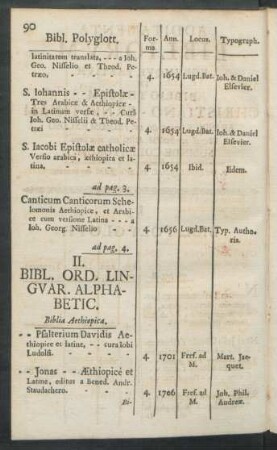 90
Bibl. Polyglott. Forma Ann. Locus. Typograph.
latinitatem translata, - - - a Joh.
Geo. Nisselio et Theod. Petræo. - - - 4. 1654 Lugd.Bat. Joh. & Daniel Elsevier.
S. Johannis - - Epistolæ -
Tres Arabicæ & Aethiopicæ -
in Latinum versæ, - - Curâ
Joh. Geo. Nisselii & Theod. Petræi - - - 4. 1654 Lugd.Bat. Joh. & Daniel Elsevier.
S. Jacobi Epistolæ catholicæ
Versio arabica, æthiopica et latina, - - - 4. 1654 Ibid. Iidem.
ad pag. 3.
Canticum Canticorum Schelomonis Aethiopicæ, et Arabice cum versione Latina - - - a
Joh. Georg. Nisselio - - 4. 1656 Lugd.Bat. Typ. Authoris.
ad pag. 4.
II.
BIBL. ORD. LINGVAR. ALPHABETIC.
Biblia Aethiopica.
- - Psalterium Davidis Aethiopice et latine, - - cura Iobi
Ludolfi. - - - 4. 1701 Fref. ad M. Mart. Jacquet.
- - Jonas - - Æthiopicé et
Latinæ, editus a Bened. Andr.
Staudachero. - - 4. 1706 Fref. ad M. Joh. Phil. Andreæ.
Bi-